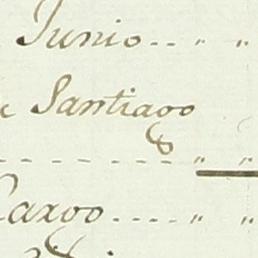 Junio.. „ „
Santiago
- - - - - - - „ „
Cargo.... „ „